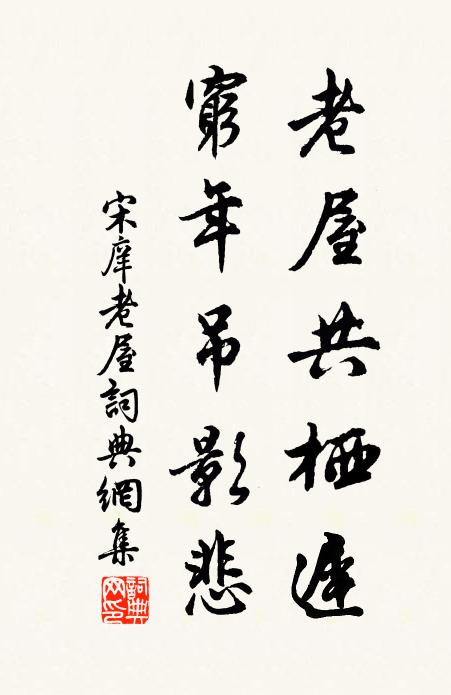 老屋共栖遲
窮年吊影悲
宋庠老屋詞典網集
詞典网印